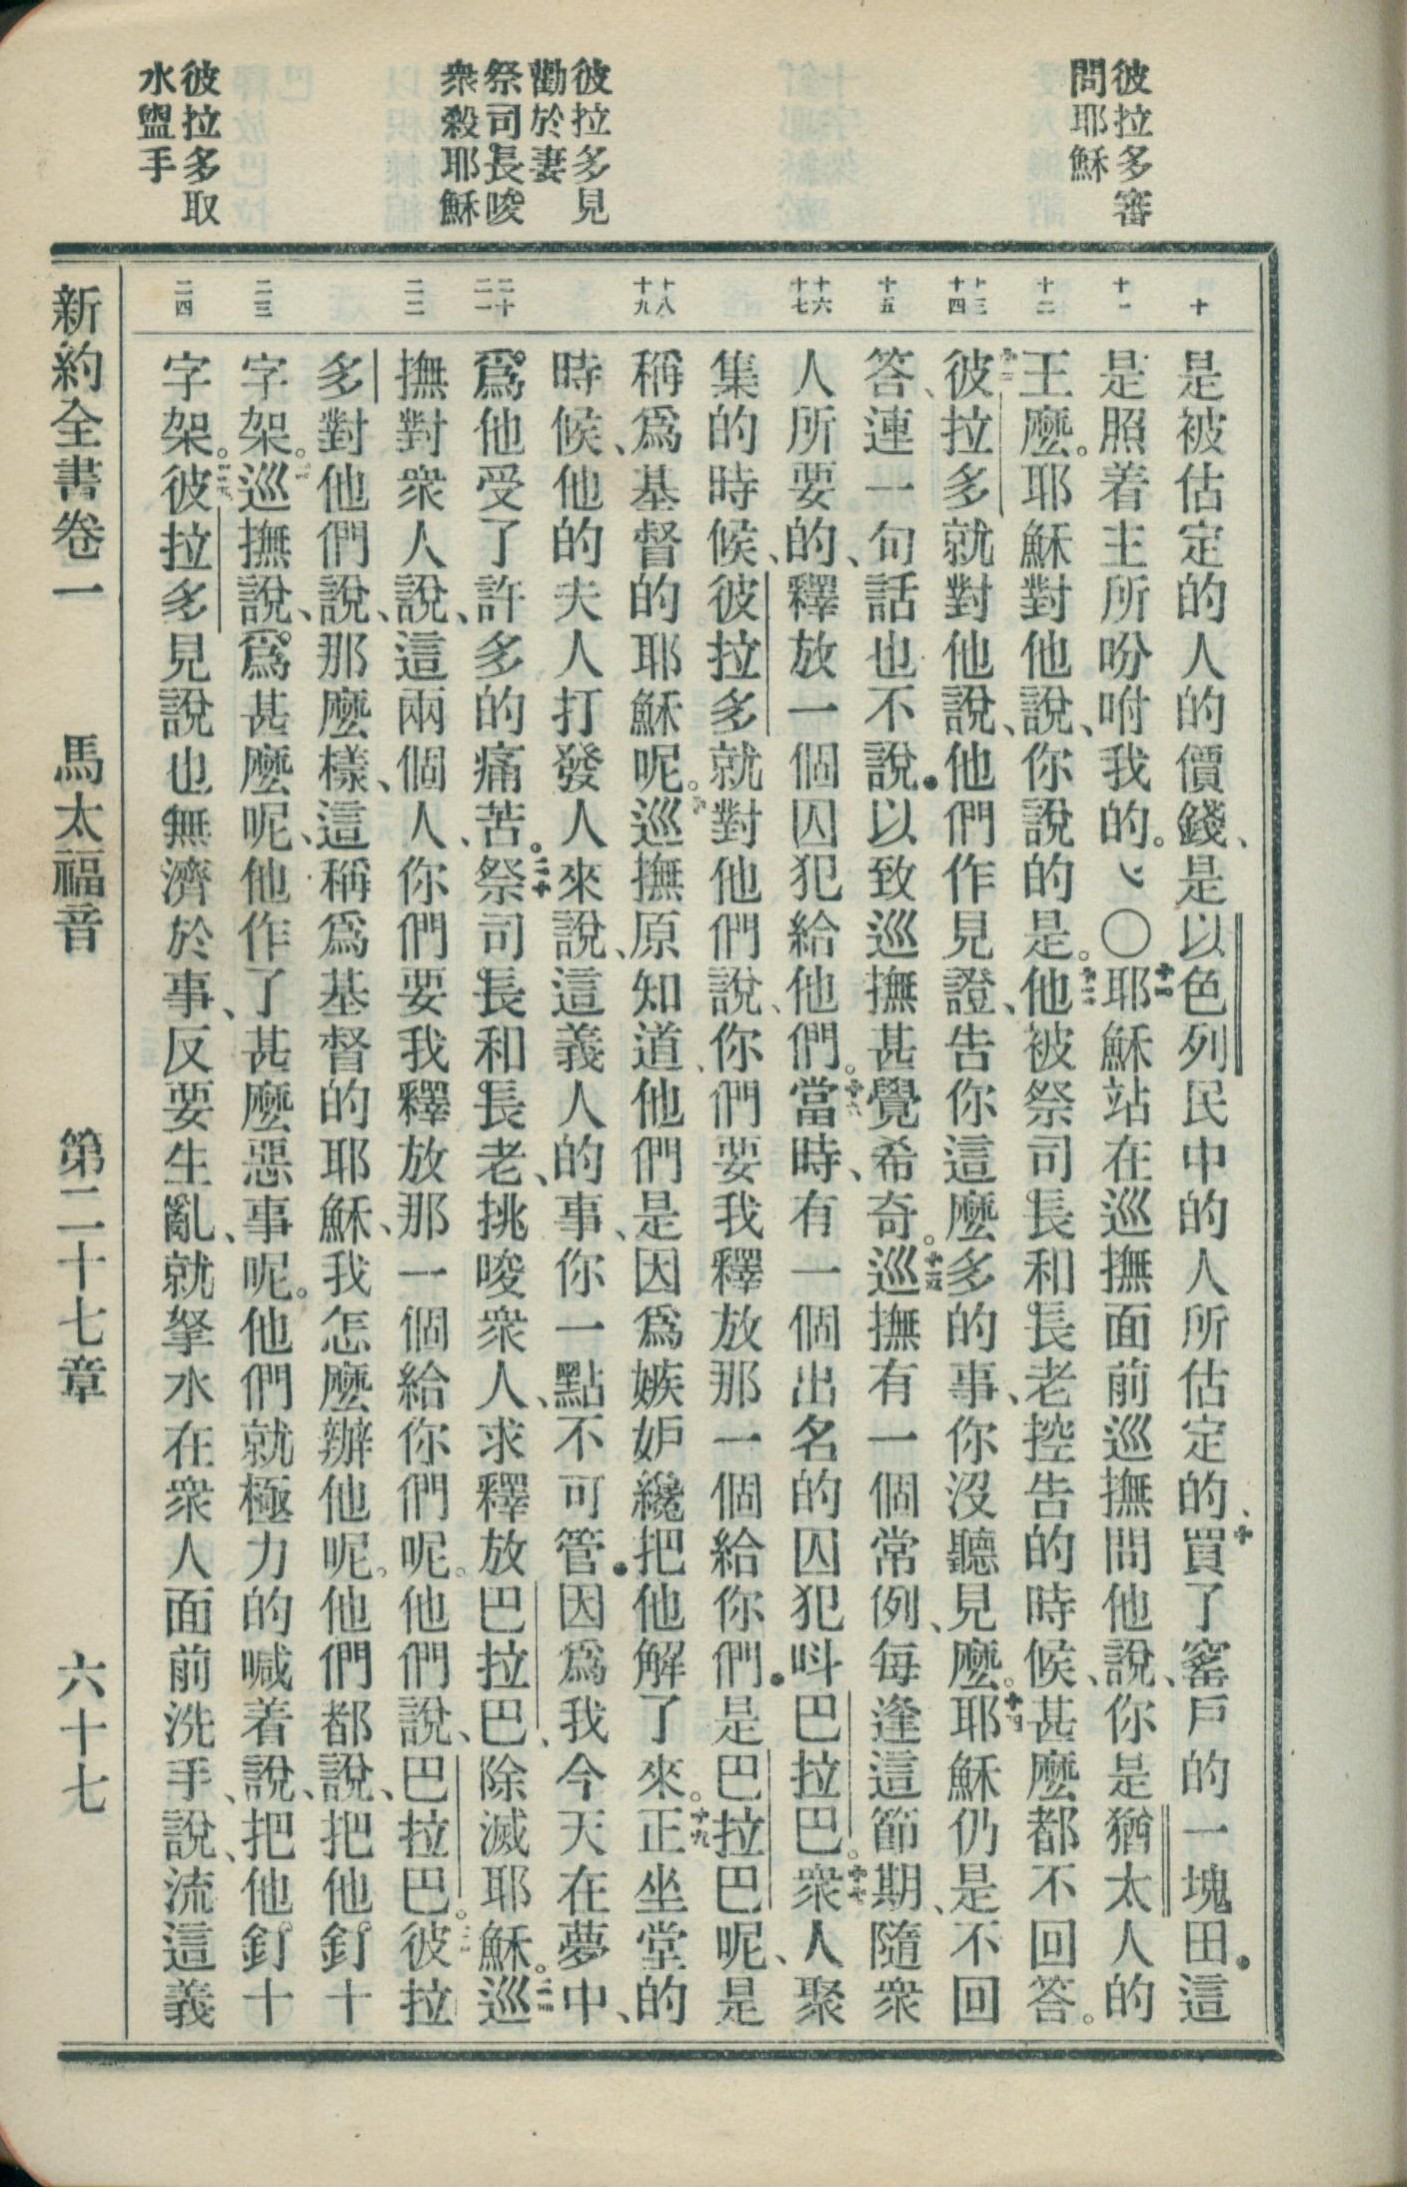 彼拉多審
問耶穌
彼拉多見
勸於妻
祭司長唆
衆殺耶穌
彼拉多取
水盥手
十
十一
十二
十三
十四
十五
十六
十七
十八
十九
二十
二一
二二
二三
二四
是被估定的人的價錢、是以色列民中的人所估定的、十買了窰戶的一塊田．這
是照着主所吩咐我的。〇十一耶穌站在巡撫面前巡撫問他說、你是猶太人的
王麼。耶穌對他說、你說的是。十二他被祭司長和長老控告的時候、甚麼都不回答。
十三彼拉多就對他說、他們作見證、告你這麼多的事、你沒聽見麼。十四耶穌仍是不回
答、連一句話也不說．以致巡撫甚覺希奇。十五巡撫有一個常例、每逢這節期、隨衆
人所要的、釋放一個囚犯給他們。十六當時、有一個出名的囚犯呌巴拉巴。十七衆人聚
集的時候、彼拉多就對他們說、你們要我釋放那一個給你們．是巴拉巴呢、是
稱爲基督的耶穌呢。十八巡撫原知道、他們是因爲嫉妒纔把他解了來。十九正坐堂的
時候、他的夫人打發人來說、這義人的事、你一點不可管．因爲我今天在夢中、
爲他受了許多的痛苦。二十祭司長和長老、挑唆衆人、求釋放巴拉巴、除滅耶穌。二一巡
撫對衆人說、這兩個人、你們要我釋放那一個給你們呢。他們說、巴拉巴。二二彼拉
多對他們說、那麼樣、這稱爲基督的耶穌、我怎麼辦他呢。他們都說、把他釘十
字架。二三巡撫說、爲甚麼呢、他作了甚麼惡事呢。他們就極力的喊着說、把他釘十
字架。二四彼拉多見說也無濟於事、反要生亂、就拏水在衆人面前洗手、說、流這義
新約全書卷一 馬太福音 第二十七章 六十七